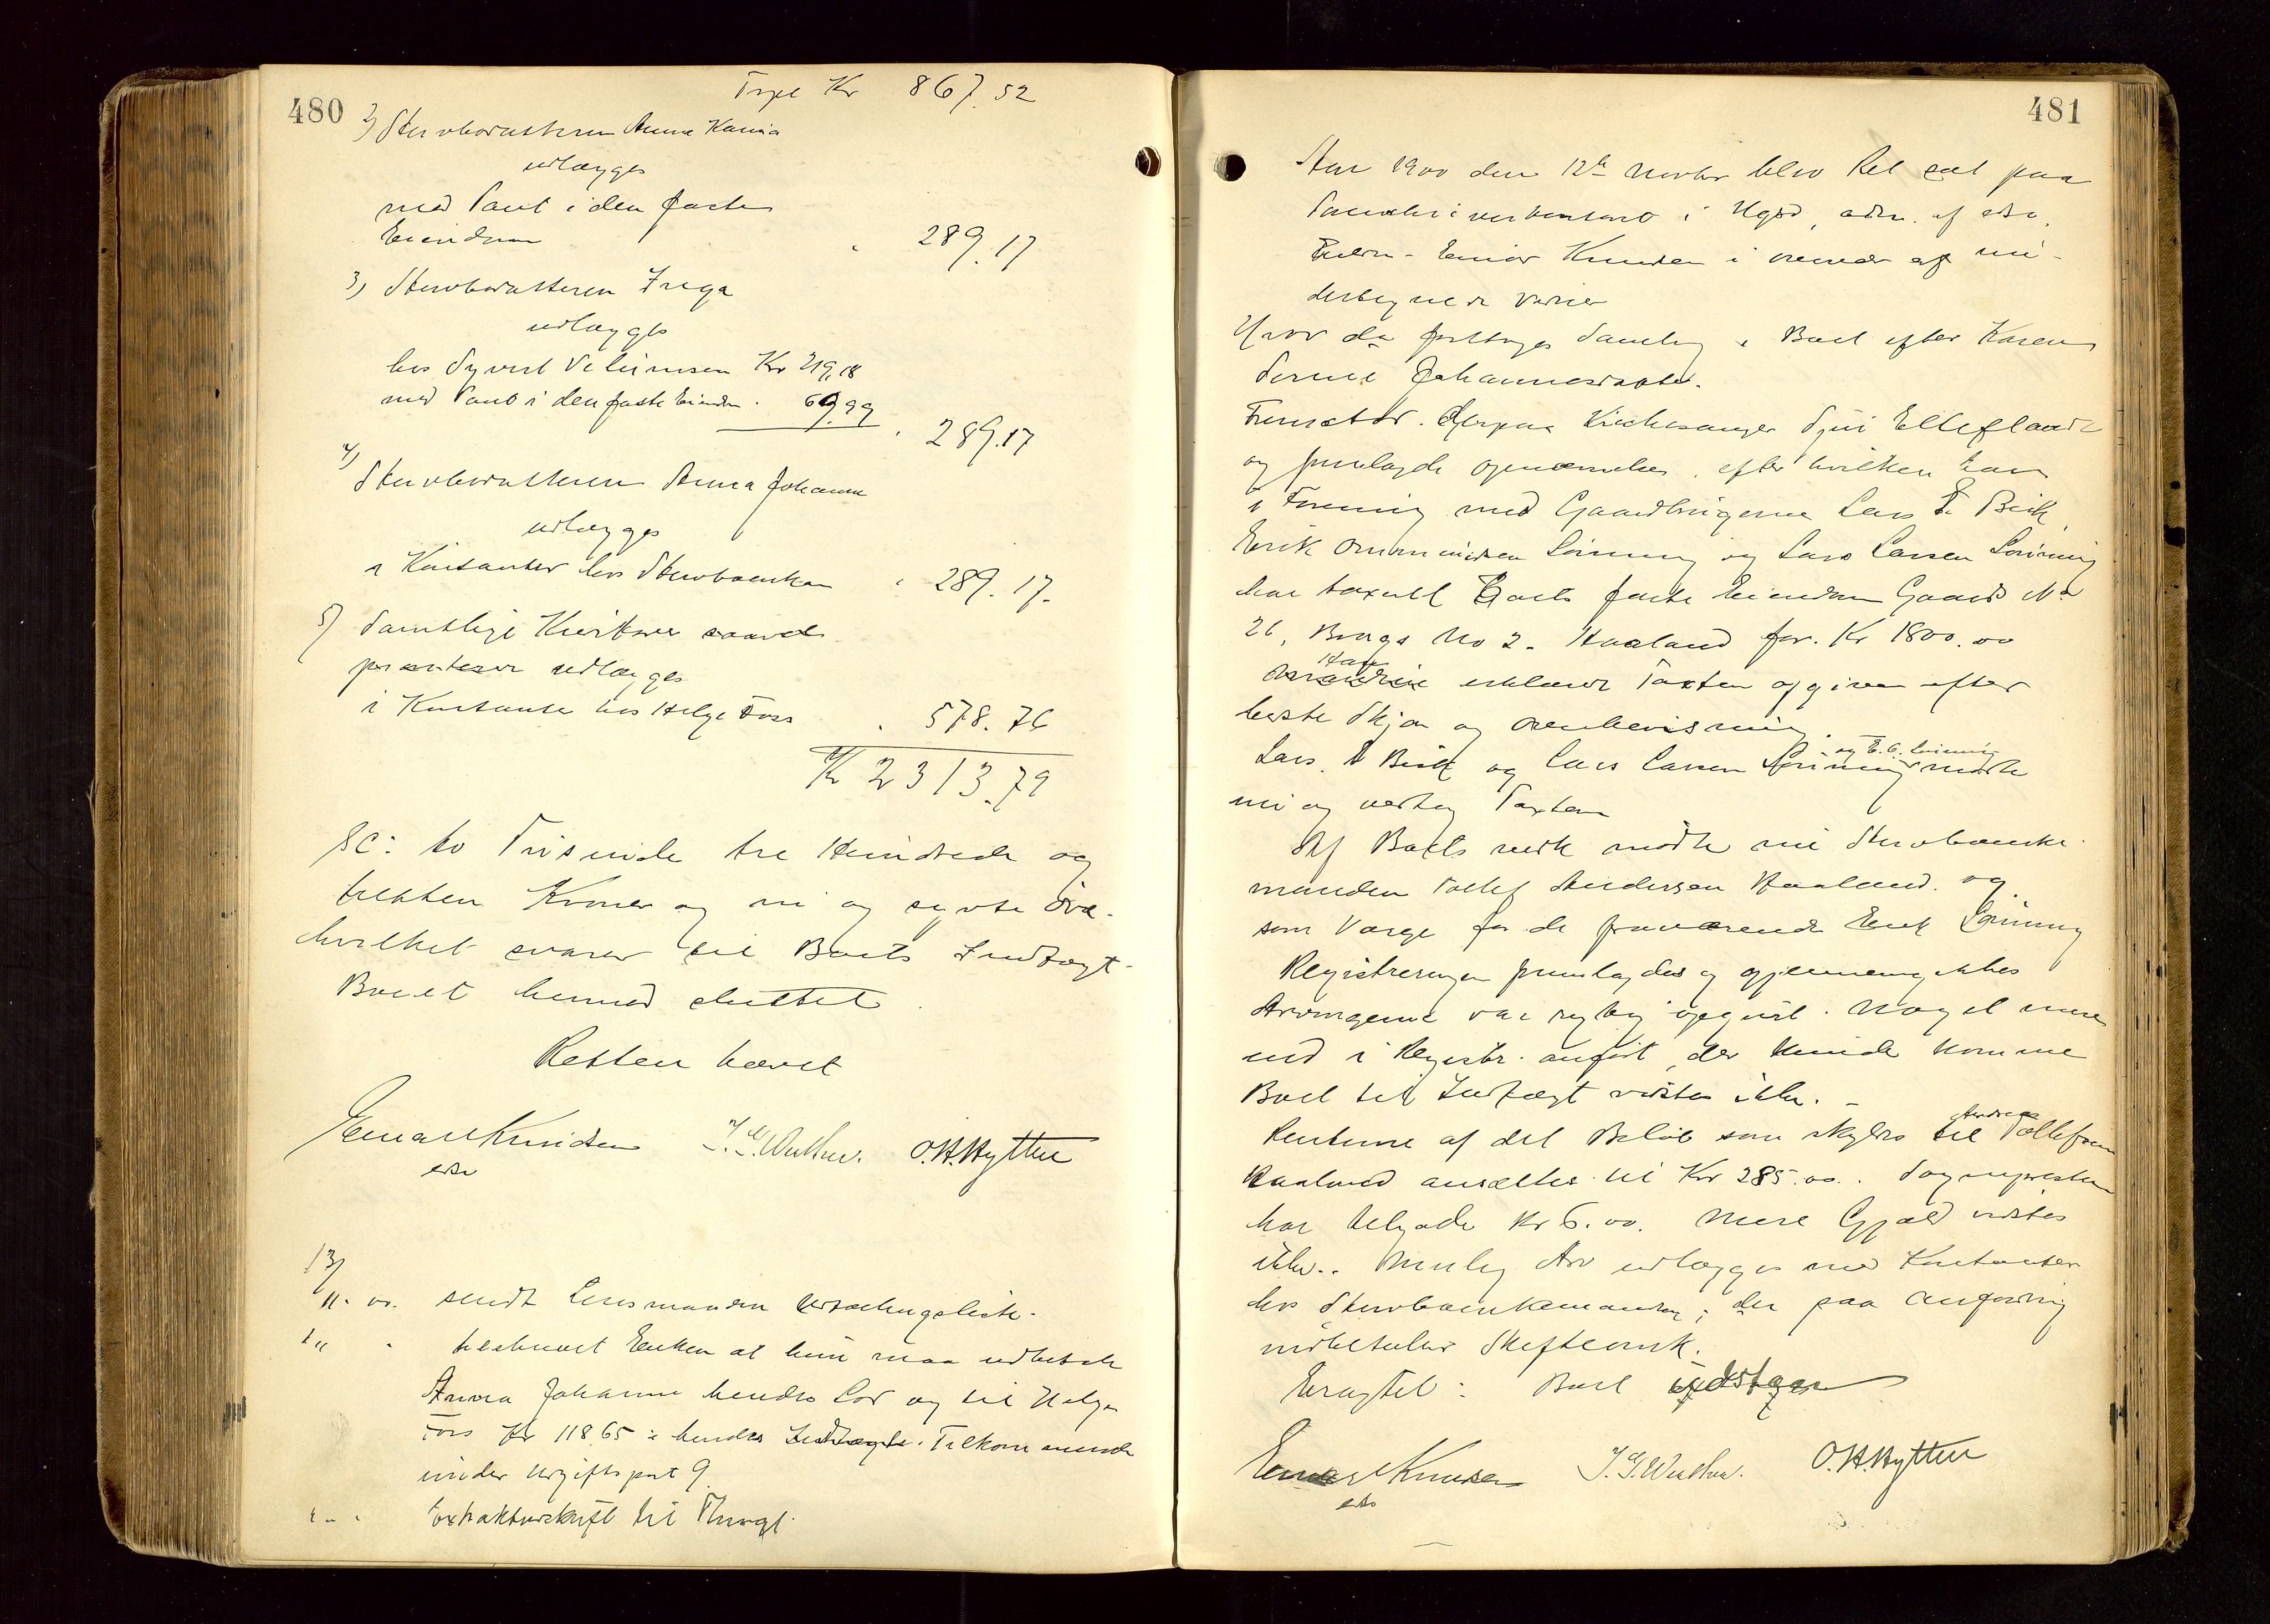 480
Trpt Kr 867.52
2) Stervbodatteren Anna Karina
udlægges
med Pant i den faste
Eiendom " 289.17
3) Stervbodatteren Inga
udlægges
hos Syvert Kr 219,18
med Pant i den faste Eiendom " 69.99
" 289.17
4)
Stervbodatteren Anna Johanne
udlægges
i Kontanter hos Stervboenken " 289.17.
5) Samtlige Kreditorer saavel
udlægges
i Kontante hos Helge Foss " 578.76
Kr 2313.79
SC: to Tusinde tre Hundrede og
tretten Kroner og ni og sytti Øre
hvilket svarer til Boets Indtægt.
Boet hermed sluttet.
Retten hævet
Einar Knudsen
edsv
O.H.Hytten
13/
11. 00. sendt Lensmanden Udlodningsliste.
" " beskrevet Enken at hun maa udbetale
Anna Johanne hendes Lod og til Helge
Foss Kr 118.65 i hendes Indtægt. Tilkommende
under Udgiftspost 9.
" " " Extraktudskrift til
481
Aar 1900 den 12te Novbr blev Ret sat paa
i Ugsd, adm. af edsv.
Fuldm. Einar Knudsen i Overvær af un-
dertegnede Vidner
Hvor da foretoges Samling i Boet efter Karen
Serine Johannesdatter.
Fremstod Kirkesanger Elleflaadt
og fremlagde Opnævnelse, efter hvilken han
i Forening med Gaardbrugerne Lars T. Birk,
Erik Ommundsen Lønning og Lars Larsen Lønning
har taxeret Boets faste Eiendom Gaards No
26, Brugs No 2. Haaland for Kr 1800.00
Han
erklærer Taxten afgiven efter
beste Skjøn og Overbevisning. —
og E. O. Lønning
Lars T Birk og Lars Larsen Lønning mødte
nu og vedtog Taxten
Af Boets vedk mødte nu Stervboenke-
manden Tollef Andersen Haaland. og
som Værge for de fraværende Erik Lønning
Registreringen fremlagdes og gjennemgikkes
Arvingerne var rigtig opgivet. Noget mere
end i Registr. anført, der kunde komme
Boet til Indtægt vidstes ikke. –
Andreas
Renterne af det Beløb som skyldes til Tollefsen
Haaland ansættes til Kr 285.00. Sognepresten
har tilgode Kr 6.00. Mere Gjæld vidstes
ikke. Mulig Arv udlægges med Kontanter
hos Stervboenkemanden; der paa Anfordring
udbetaler Skifteomk.
Eragtet: Boet udstaar
Einar Knudsen
edsv
O.H.Hytten